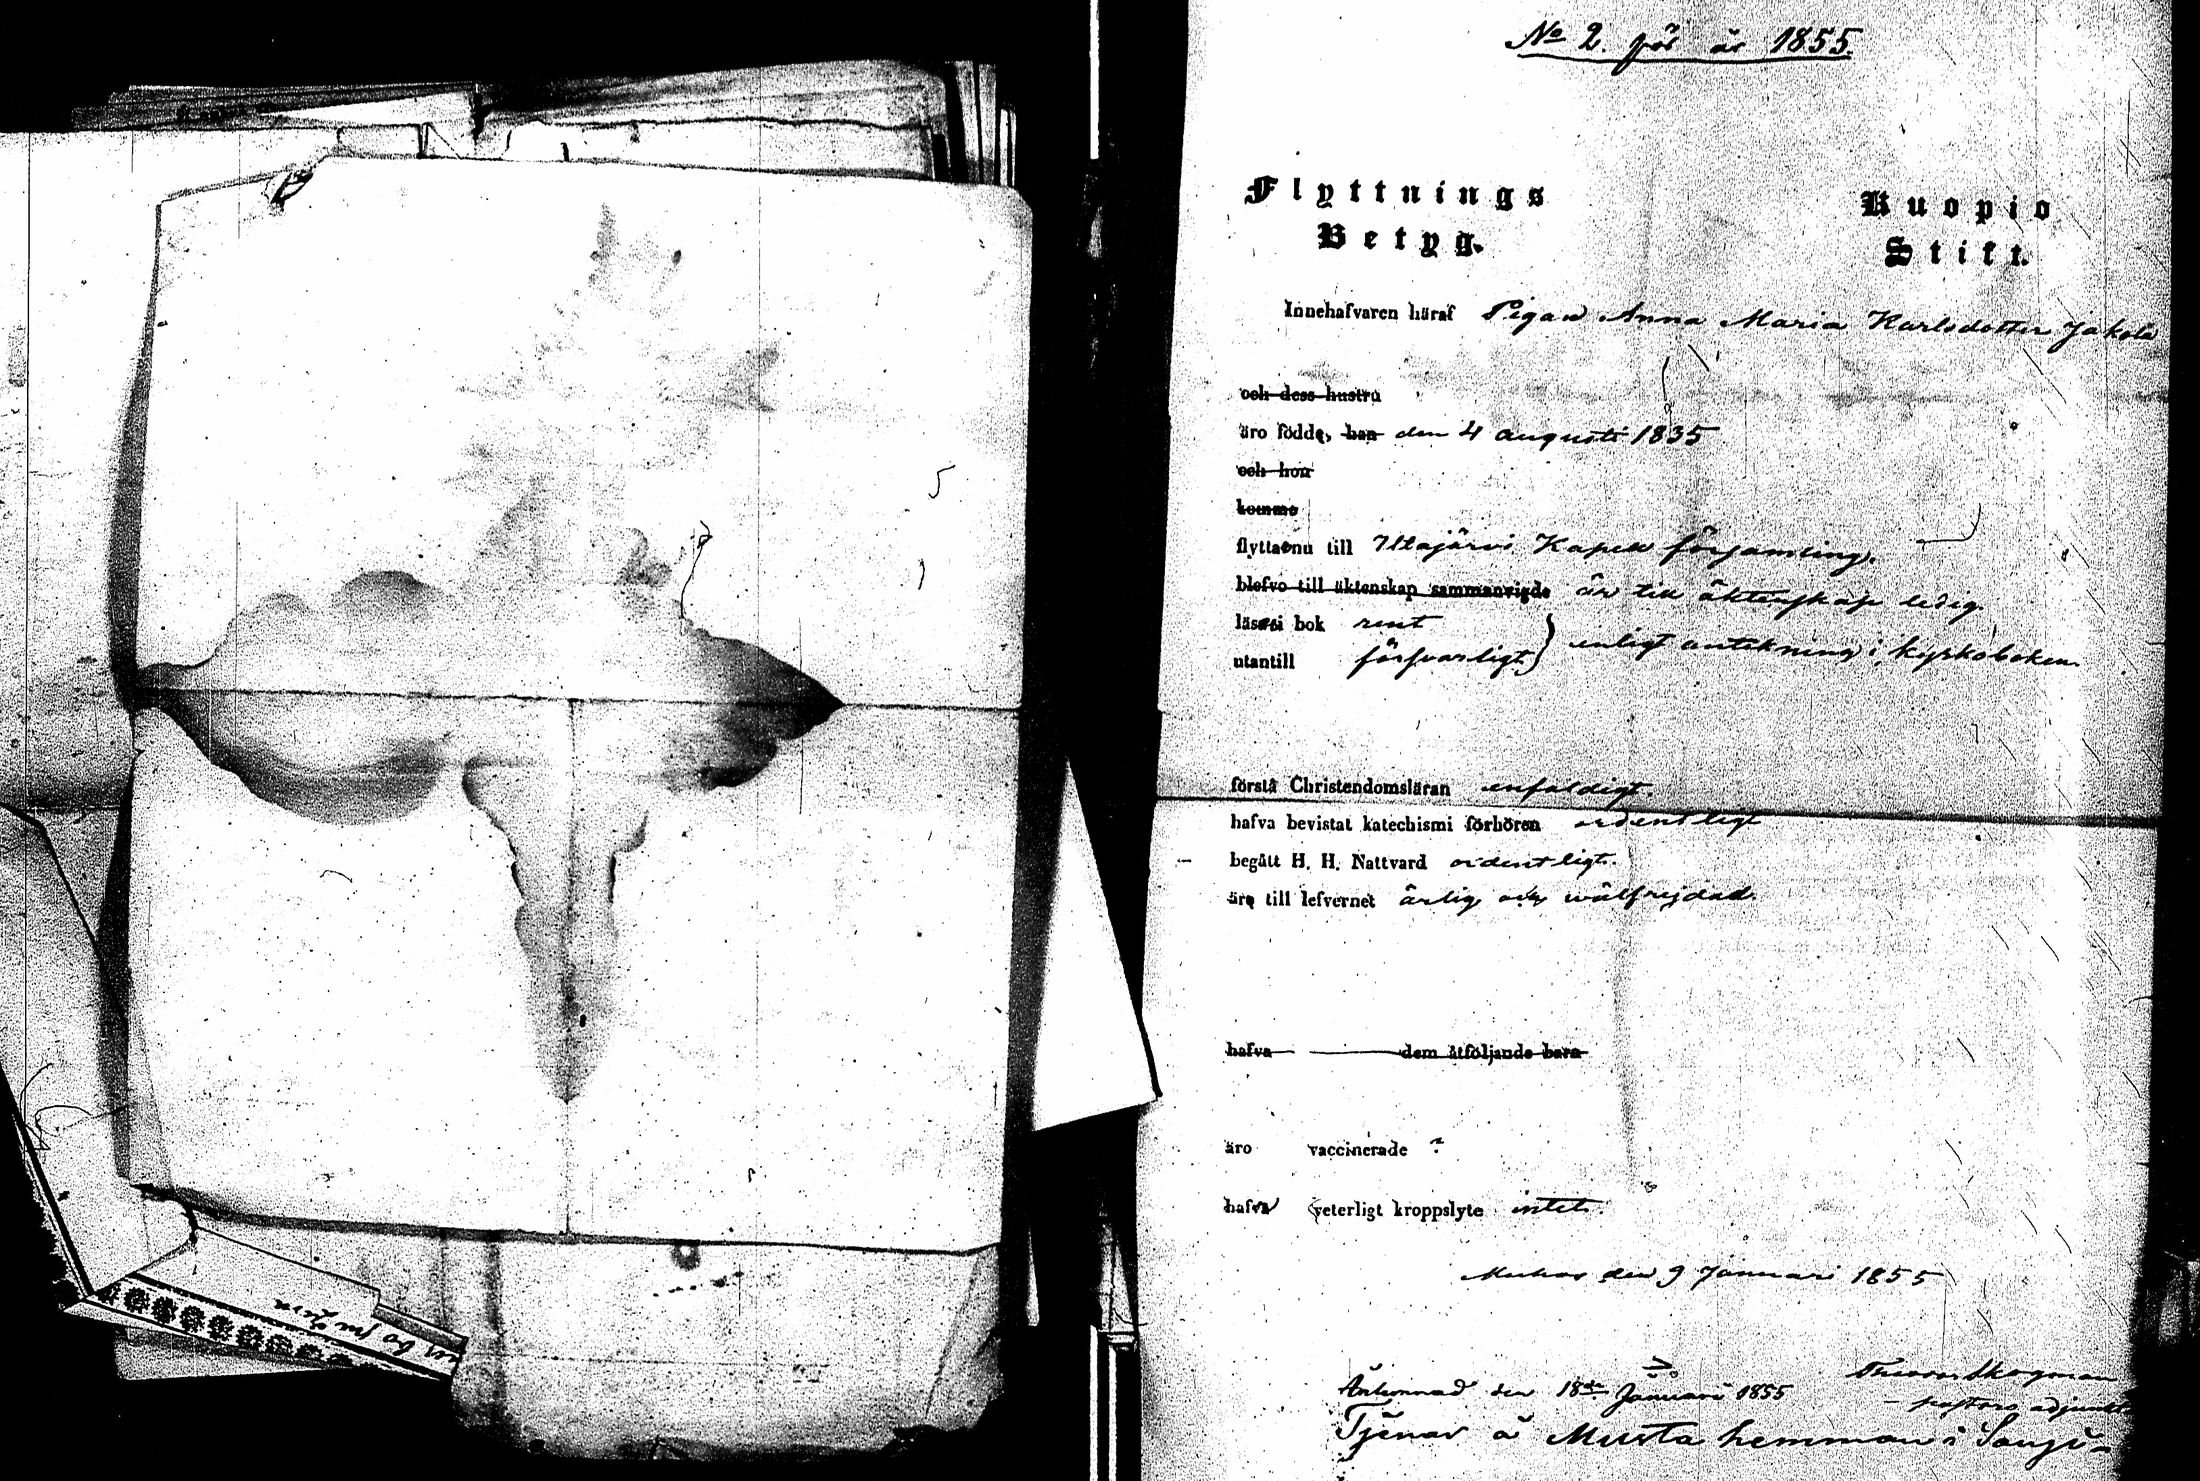 No 2. för år 1855.
Flyttnings
Betyg.
Kuopio
Stift.
Innehafvaren häraf Pigan Anna Maria Karlsdotter Jakola
och dess hustru
äro födde, han den 4 augusti 1835
och hon
komme
flytta nu till Utajärvi Kapell församling.
blefvo till äktenskap sammanvigde är till äktenskap ledig.
läsa i bok rent
utantill försvarligt } enligt antekning i kyrkoboken.
förstå Christendomsläran enfaldigt.
hafva bevistat katechismi förhören ordentligt
begått H. H. Nattvard ordentligt.
äro till lefvernet ärlig och wälfrejdad.
hafva dem åtföljande barn
äro vaccinerade ?
hafva veterligt kroppslyte intet.
Muhos den 9 Januari 1855
Skogman
pastors adjunkt
Ankommad den 18de Januari 1855
Tjenar å Musta hemman i